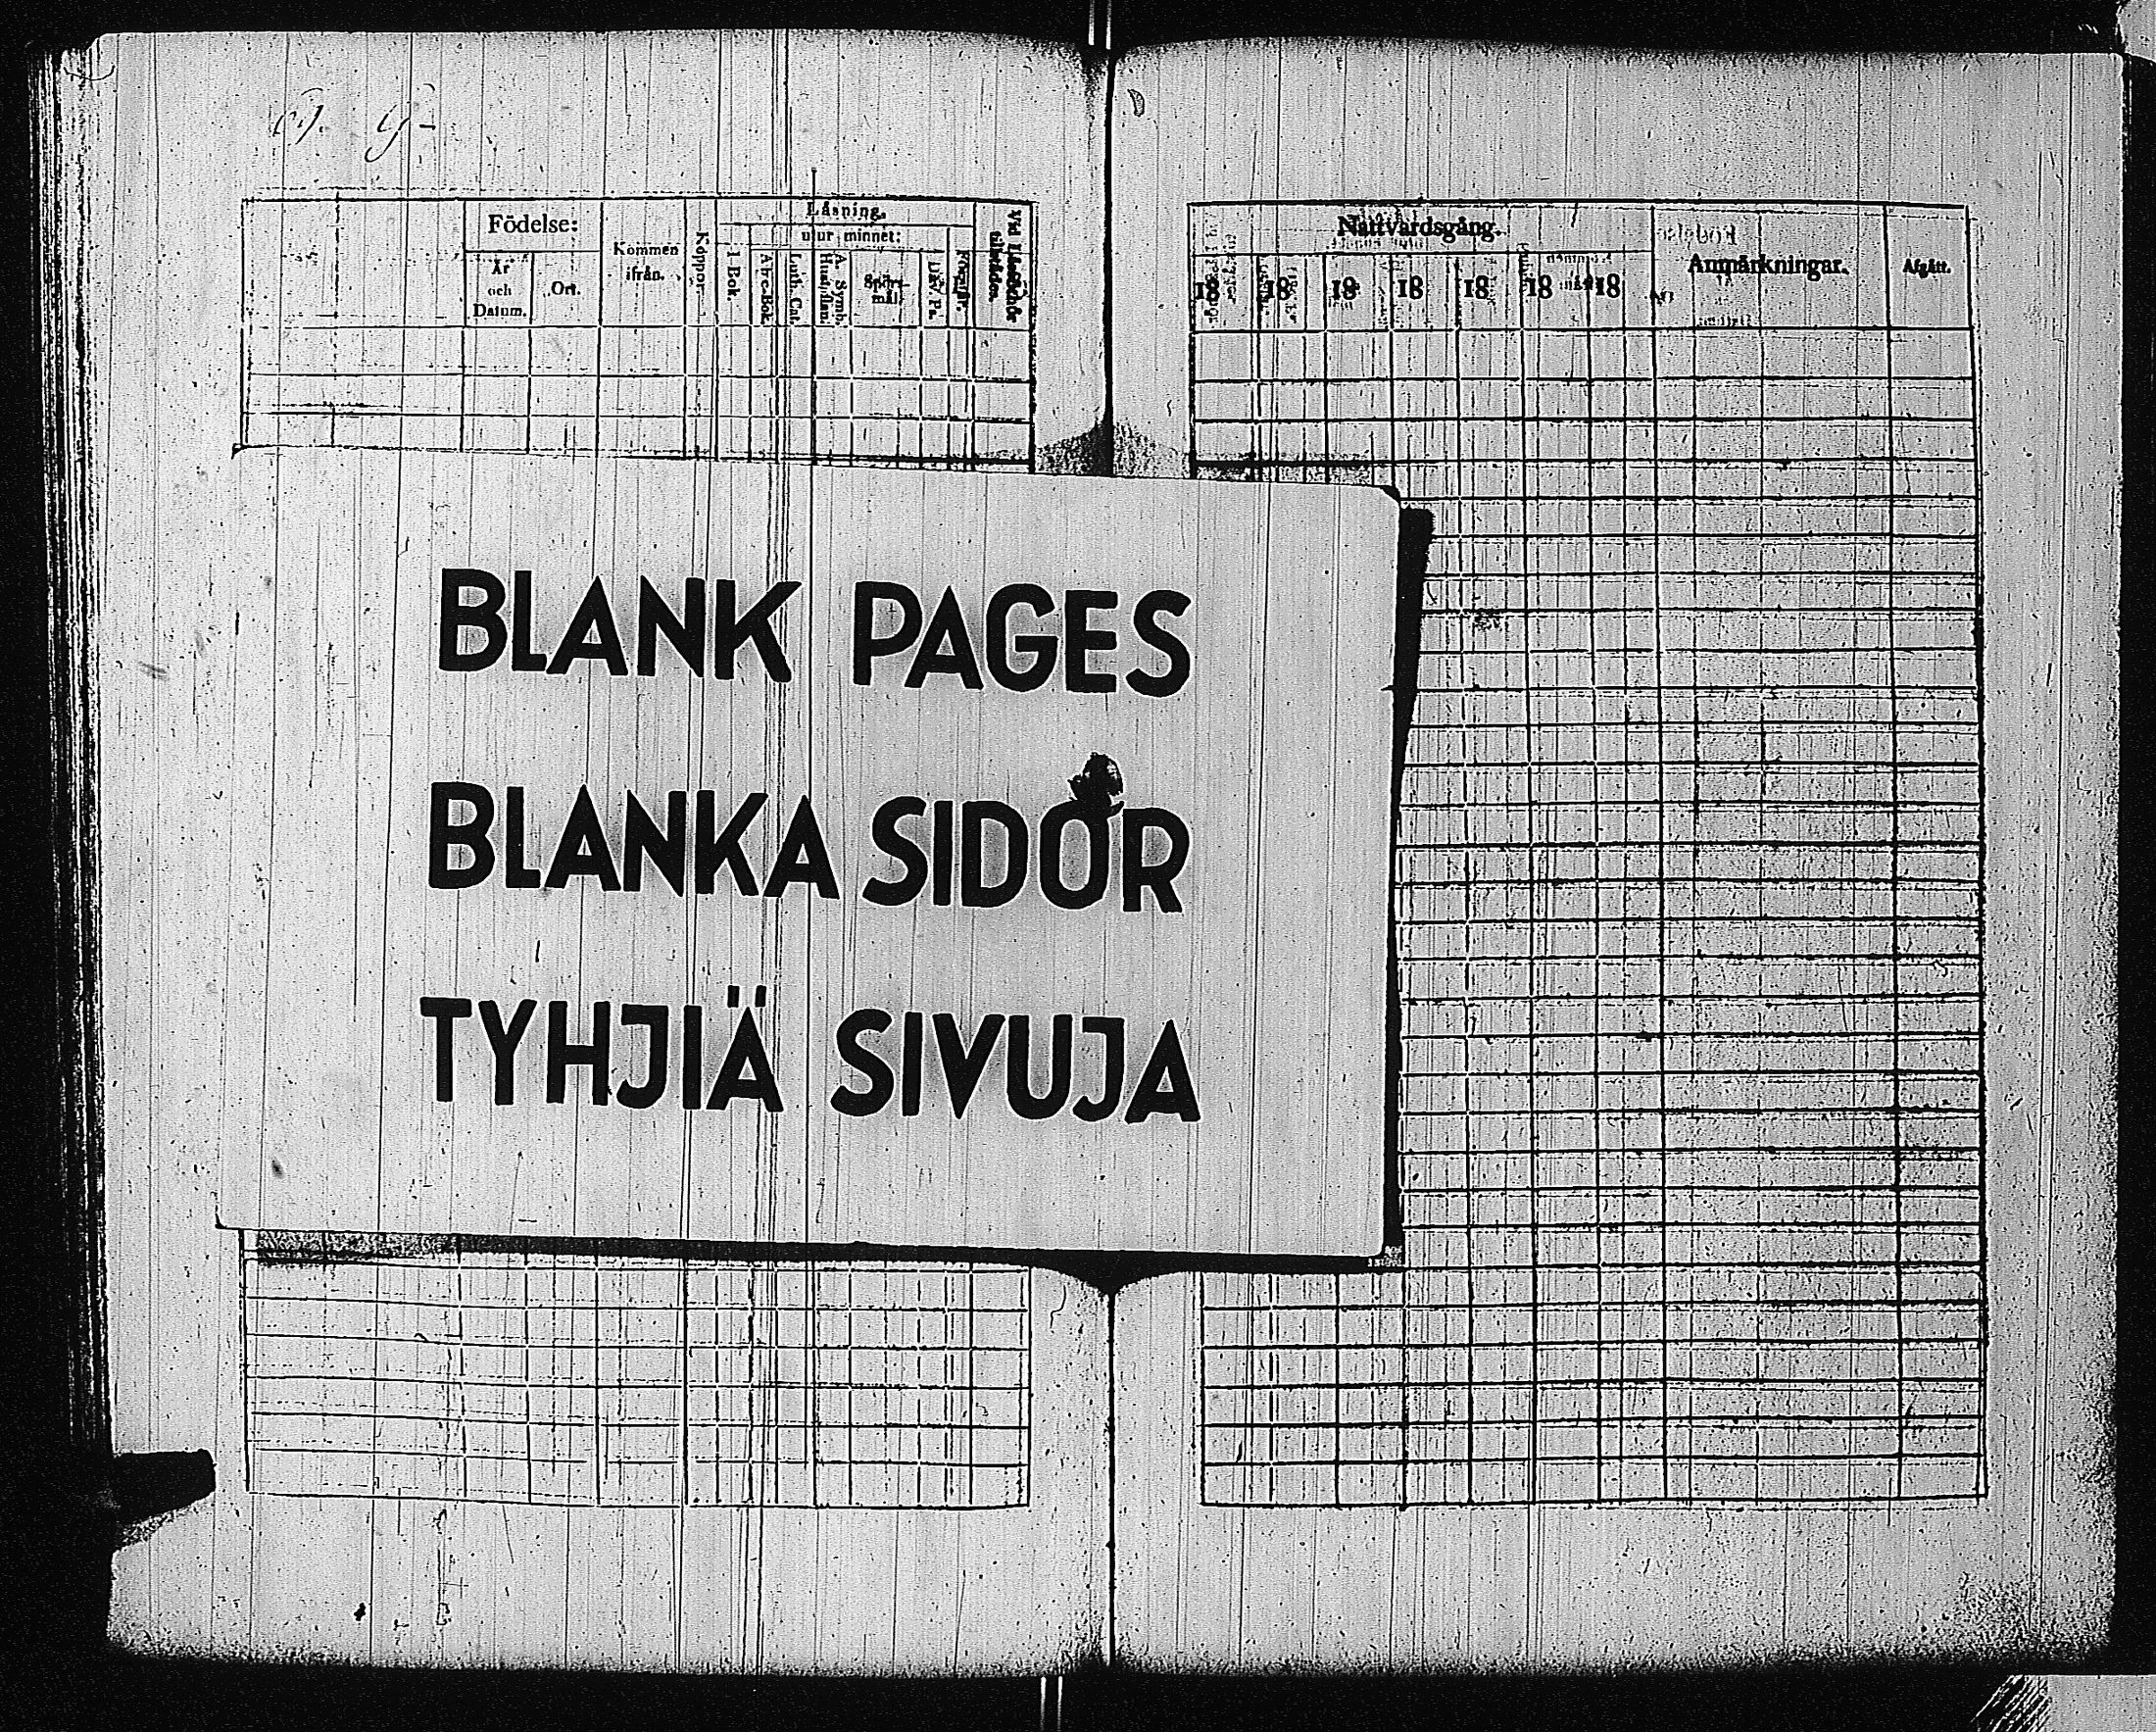 Födelse:
År
och
Datum.
Ort.
Kommen
ifrån.
Koppor.
Läsning.
utur minnet:
I Bok.
Abc-Bok.
Luth. Cat.
A. Symb.
Hustaflan.
Spörs-
mål.
Dav. Ps.
Förstår.
Vid Läseförhör
tillstädes.
Nattvardsgång.
18 18 18 18 18 18 18
Anmärkningar.
Afgått.
BLANK PAGES
BLANKA SIDOR
TYHJIÄ SIVUJA